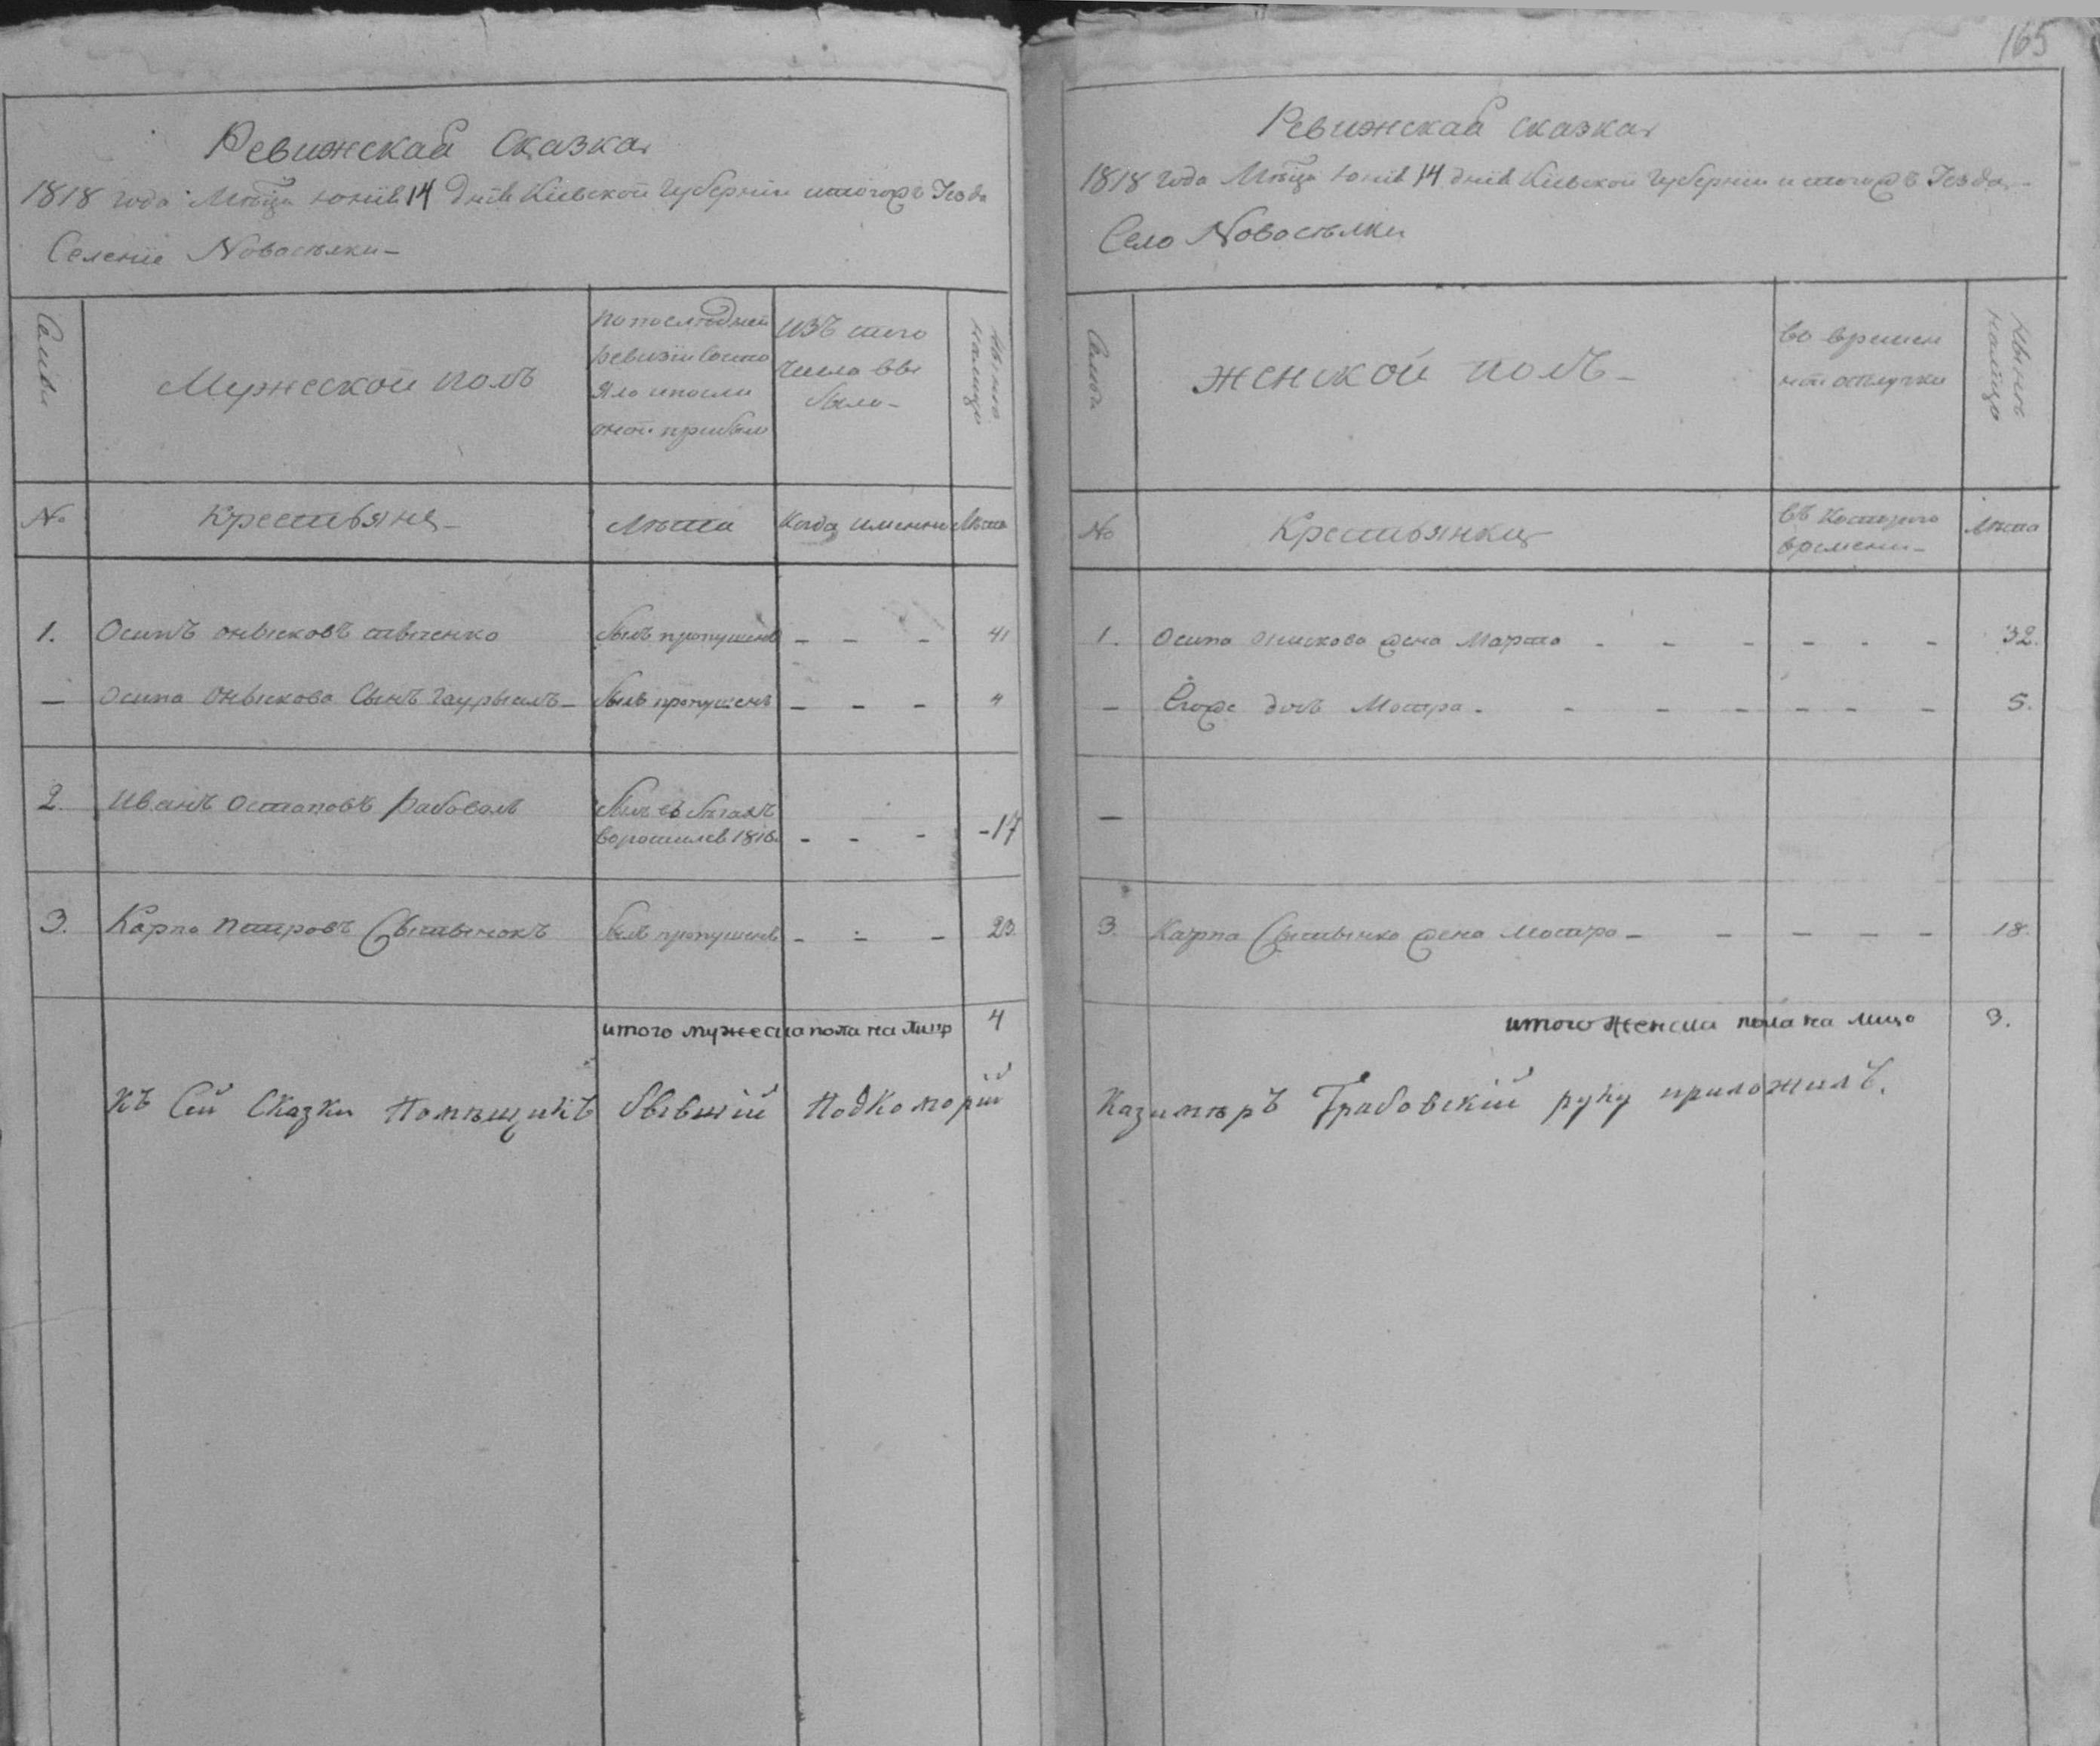 165
Ревижская Сказка
1818 года Мѣца юнія 14 дня Кіевской Губерніи и тогожъ Уезда
Селеніе Новосѣлки
Семьи
Мужеской полъ
по последней
ревизіи состо
яло и после
оной прибыло
изъ того
числа вы
было
Нынѣ
налицо
№
Крестьяне
Лѣта
Когда именно
Лѣта
1.
Осипъ Онысковъ
былъ пропущенъ
- - -
41
—
Осипа Оныскова Сынъ Гаурыилъ
былъ пропущенъ
- - -
4
2
Иванъ Остаповъ
былъ въ бѣгахъ
воротился в 1816.
- - -
-17
3.
Карпо Петровъ Сытынокъ
былъ пропущенъ
- - -
23.
итого мужеска пола на лицо
4
Къ Сей Сказки Помѣщикъ бывшій Подкоморій
Ревижская сказка
1818 года Мѣца юнія 14 дня Кіевской Губерніи и тогожъ Уезда
Село Новосѣлки
Семьи
женской полъ
во времен
ной отлучки
Нынѣ
налицо
№
Крестьянки
съ Которого
времени
лѣта
1.
Осипа Онискова жена Марта - - - - - -
32.
—
Егоже дочь Мотра - - - - - - -
5.
—
3
Карпа Сытынка жена Мотра - - - - -
18.
итого женска пола на лицо
3.
Казимѣръ Грабовскій руку приложилъ.